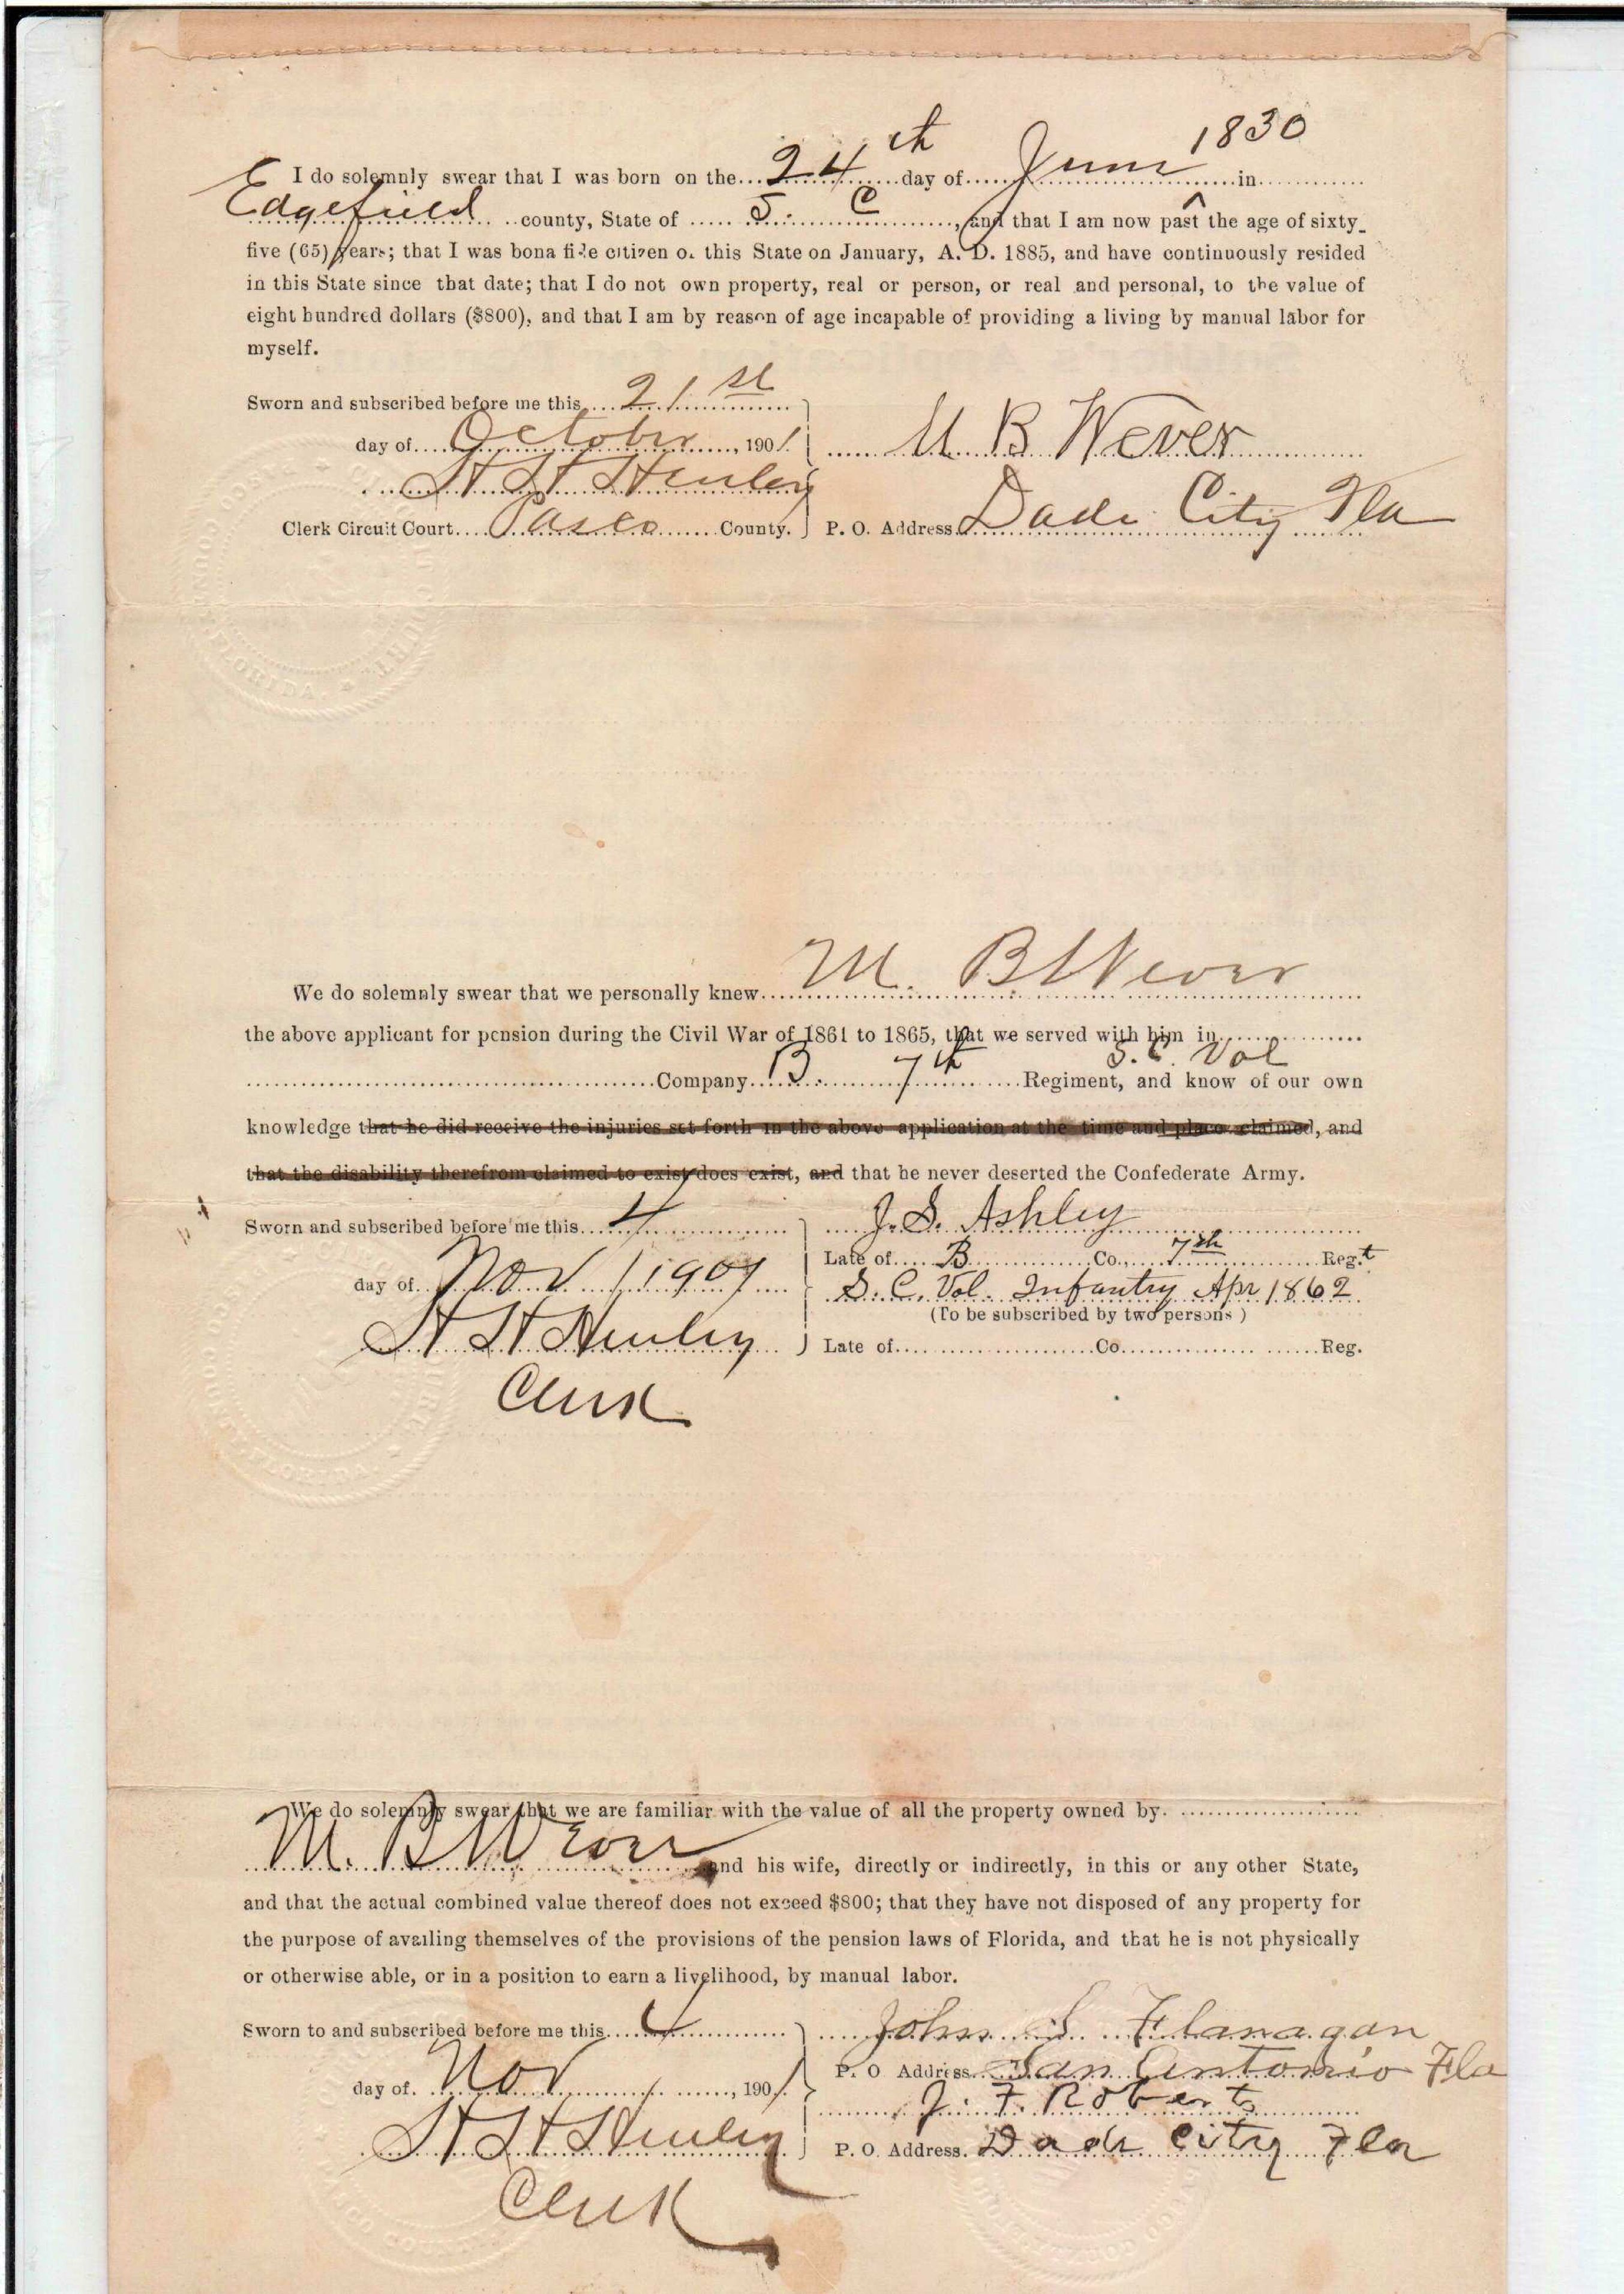 1830
I do solemnly swear that I was born on the 24th day of June in
Edgefield county, State of S. C, and that I am now past the age of sixty-
five (65) years; that I was bona fide citizen of this State on January, A. D. 1885, and have continuously resided
in this State since that date; that I do not own property, real or person, or real and personal, to the value of
eight hundred dollars ($800), and that I am by reason of age incapable of providing a living by manual labor for
myself.
Sworn and subscribed before me this 21st
day of October, 1901 M B Wever
H H Henley
Clerk Circuit Court Pasco County. P. O. Address Dade City Fla
FLORIDA
We do solemnly swear that we personally knew M. B Wever
the above applicant for pension during the Civil War of 1861 to 1865, that we served with him in
S. C. Vol
Company B. 7th Regiment, and know of our own
knowledge that he did receive the injuries set forth in the above application at the time and place claimed, and
that the disability therefrom claimed to exist does exist, and that he never deserted the Confederate Army.
Sworn and subscribed before me this 4 J. S. Ashley
Late of B Co., 7th Regt
day of Nov 1901 S. C. Vol. Infantry Apr 1862
(To be subscribed by two persons)
H H Henley Late of Co. Reg.
Clerk
FLORIDA
We do solemnly swear that we are familiar with the value of all the property owned by
M. B Wever and his wife, directly or indirectly, in this or any other State,
and that the actual combined value thereof does not exceed $800; that they have not disposed of any property for
the purpose of availing themselves of the provisions of the pension laws of Florida, and that he is not physically
or otherwise able, or in a position to earn a livelihood, by manual labor.
Sworn to and subscribed before me this 4 John S. Flanagan
P. O Address. San Antonio Fla
day of Nov, 1901 J. F. Roberts
H H Henley P. O. Address. Dade City Fla
Clerk